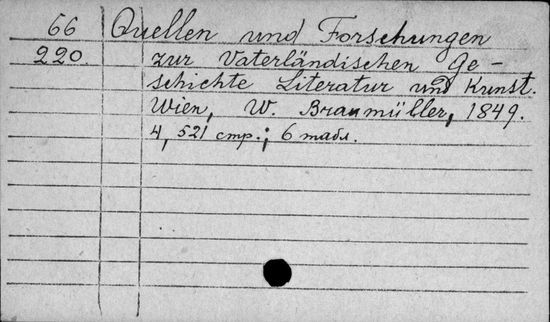 66 Quellen und Forschungen
220. zur Vaterländischen Ge-
schichte Literatur und Kunst.
Wien, W. Braumübler, 1849.
4, 521 стр.; 6 табл.